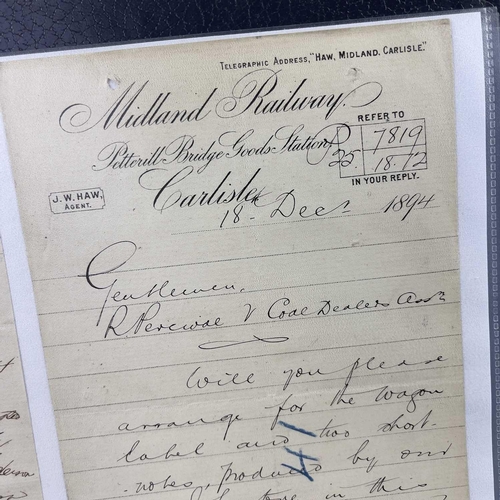 TELEGRAPHIC ADDRESS, "HAW, MIDLAND, CARLISLE."
Midland Railway.
Petterill Bridge Goods Station
REFER TO
P 7819
25. 18.12
IN YOUR REPLY.
J. W. HAW,
AGENT.
Carlisle
18 Decr 1894
Gentlemen.
R Percival V Coal Dealers Assn
Will you please
arrange for the wagon
label and two short-
notes, produced by our
in this